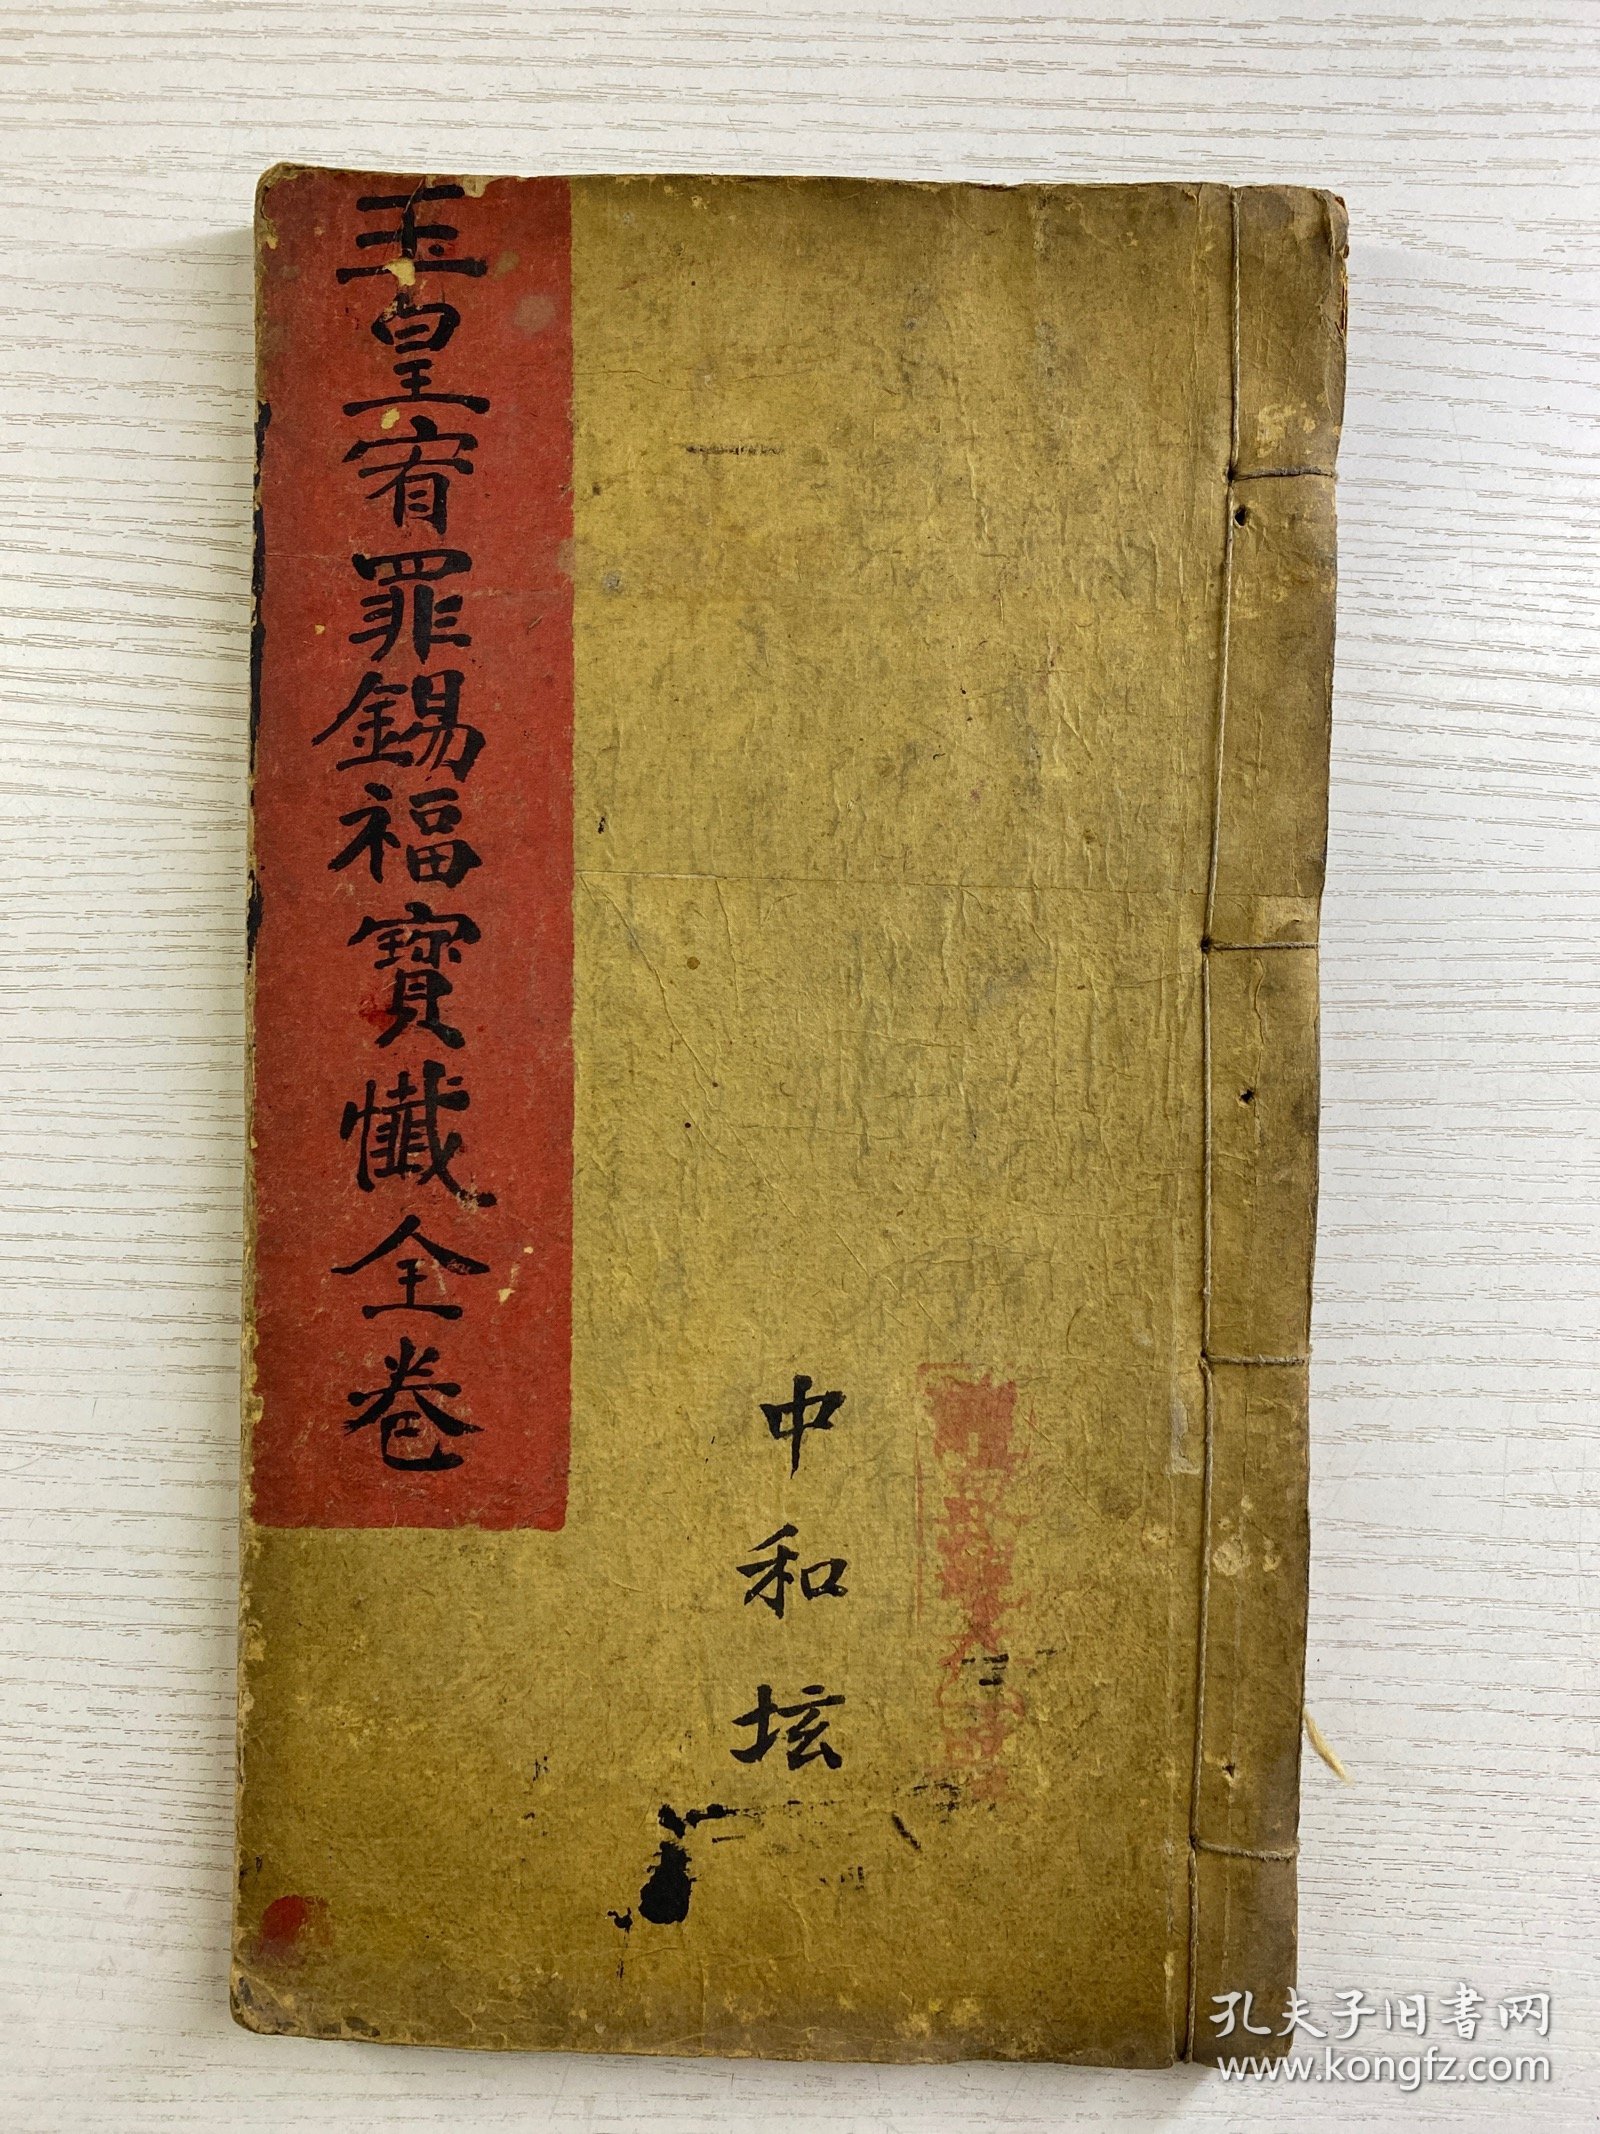 玉皇宥罪錫福寶懺全卷
中和坛
孔夫子旧书网
www.kongfz.com